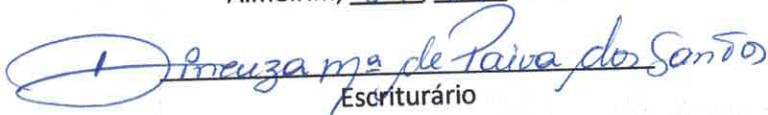 Dineuza Mª de Paiva dos Santos
Escriturário